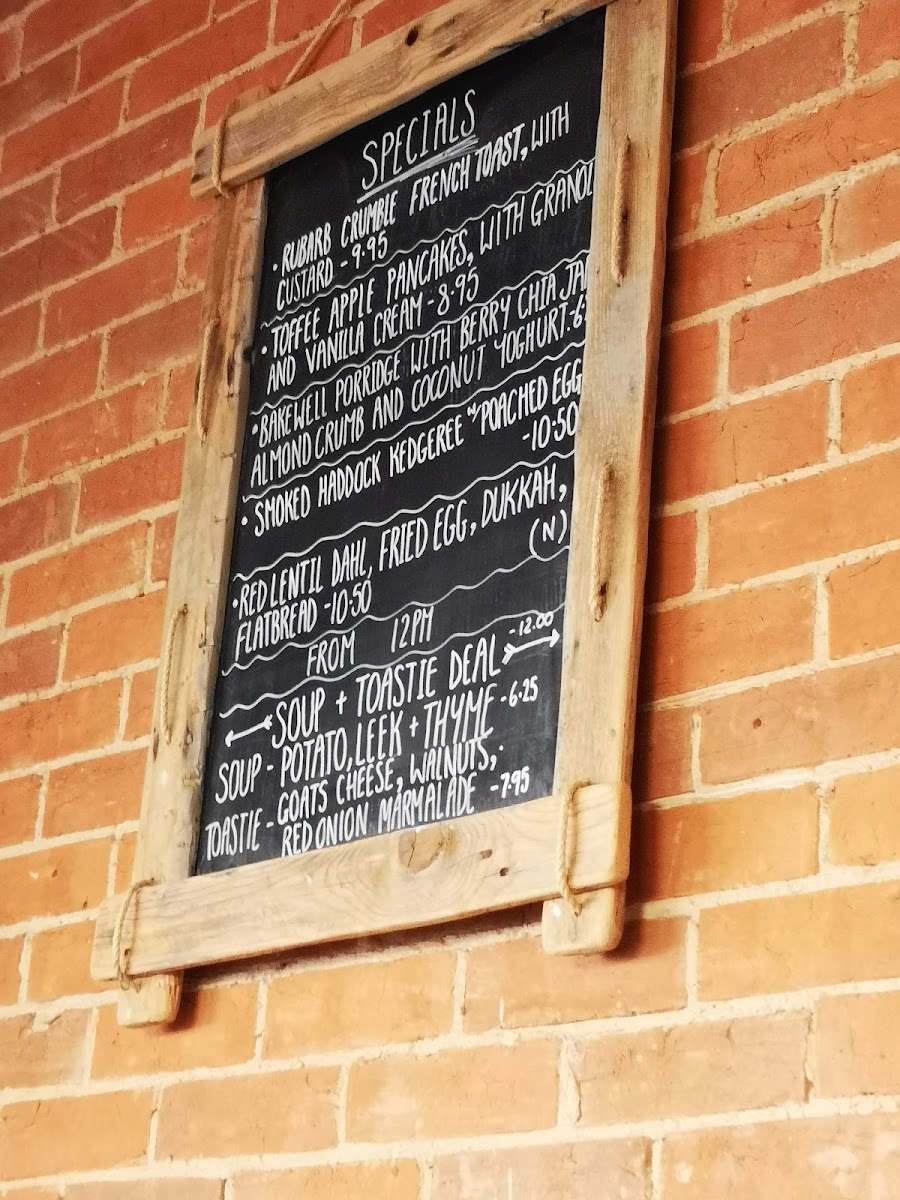 SPECIALS
• RUBARB CRUMBLE FRENCH TOAST, WITH
CUSTARD - 9.95
• TOFFEE APPLE PANCAKES, WITH GRANOL
AND VANILLA CREAM - 8.95
• BAKEWELL PORRIDGE WITH BERRY CHIA JA
ALMOND CRUMB AND COCONUT YOGHURT. - 6
• SMOKED HADDOCK KEDGEREE POACHED EGG
- 10.50
• RED LENTIL DAHL, FRIED EGG, DUKKAH,
FLATBREAD - 10.50 (N)
FROM 12PM
SOUP + TOASTIE DEAL - 12.00
SOUP - POTATO, LEEK + THYME - 6.25
TOASTIE - GOATS CHEESE, WALNUTS,
RED ONION MARMALADE - 7.95